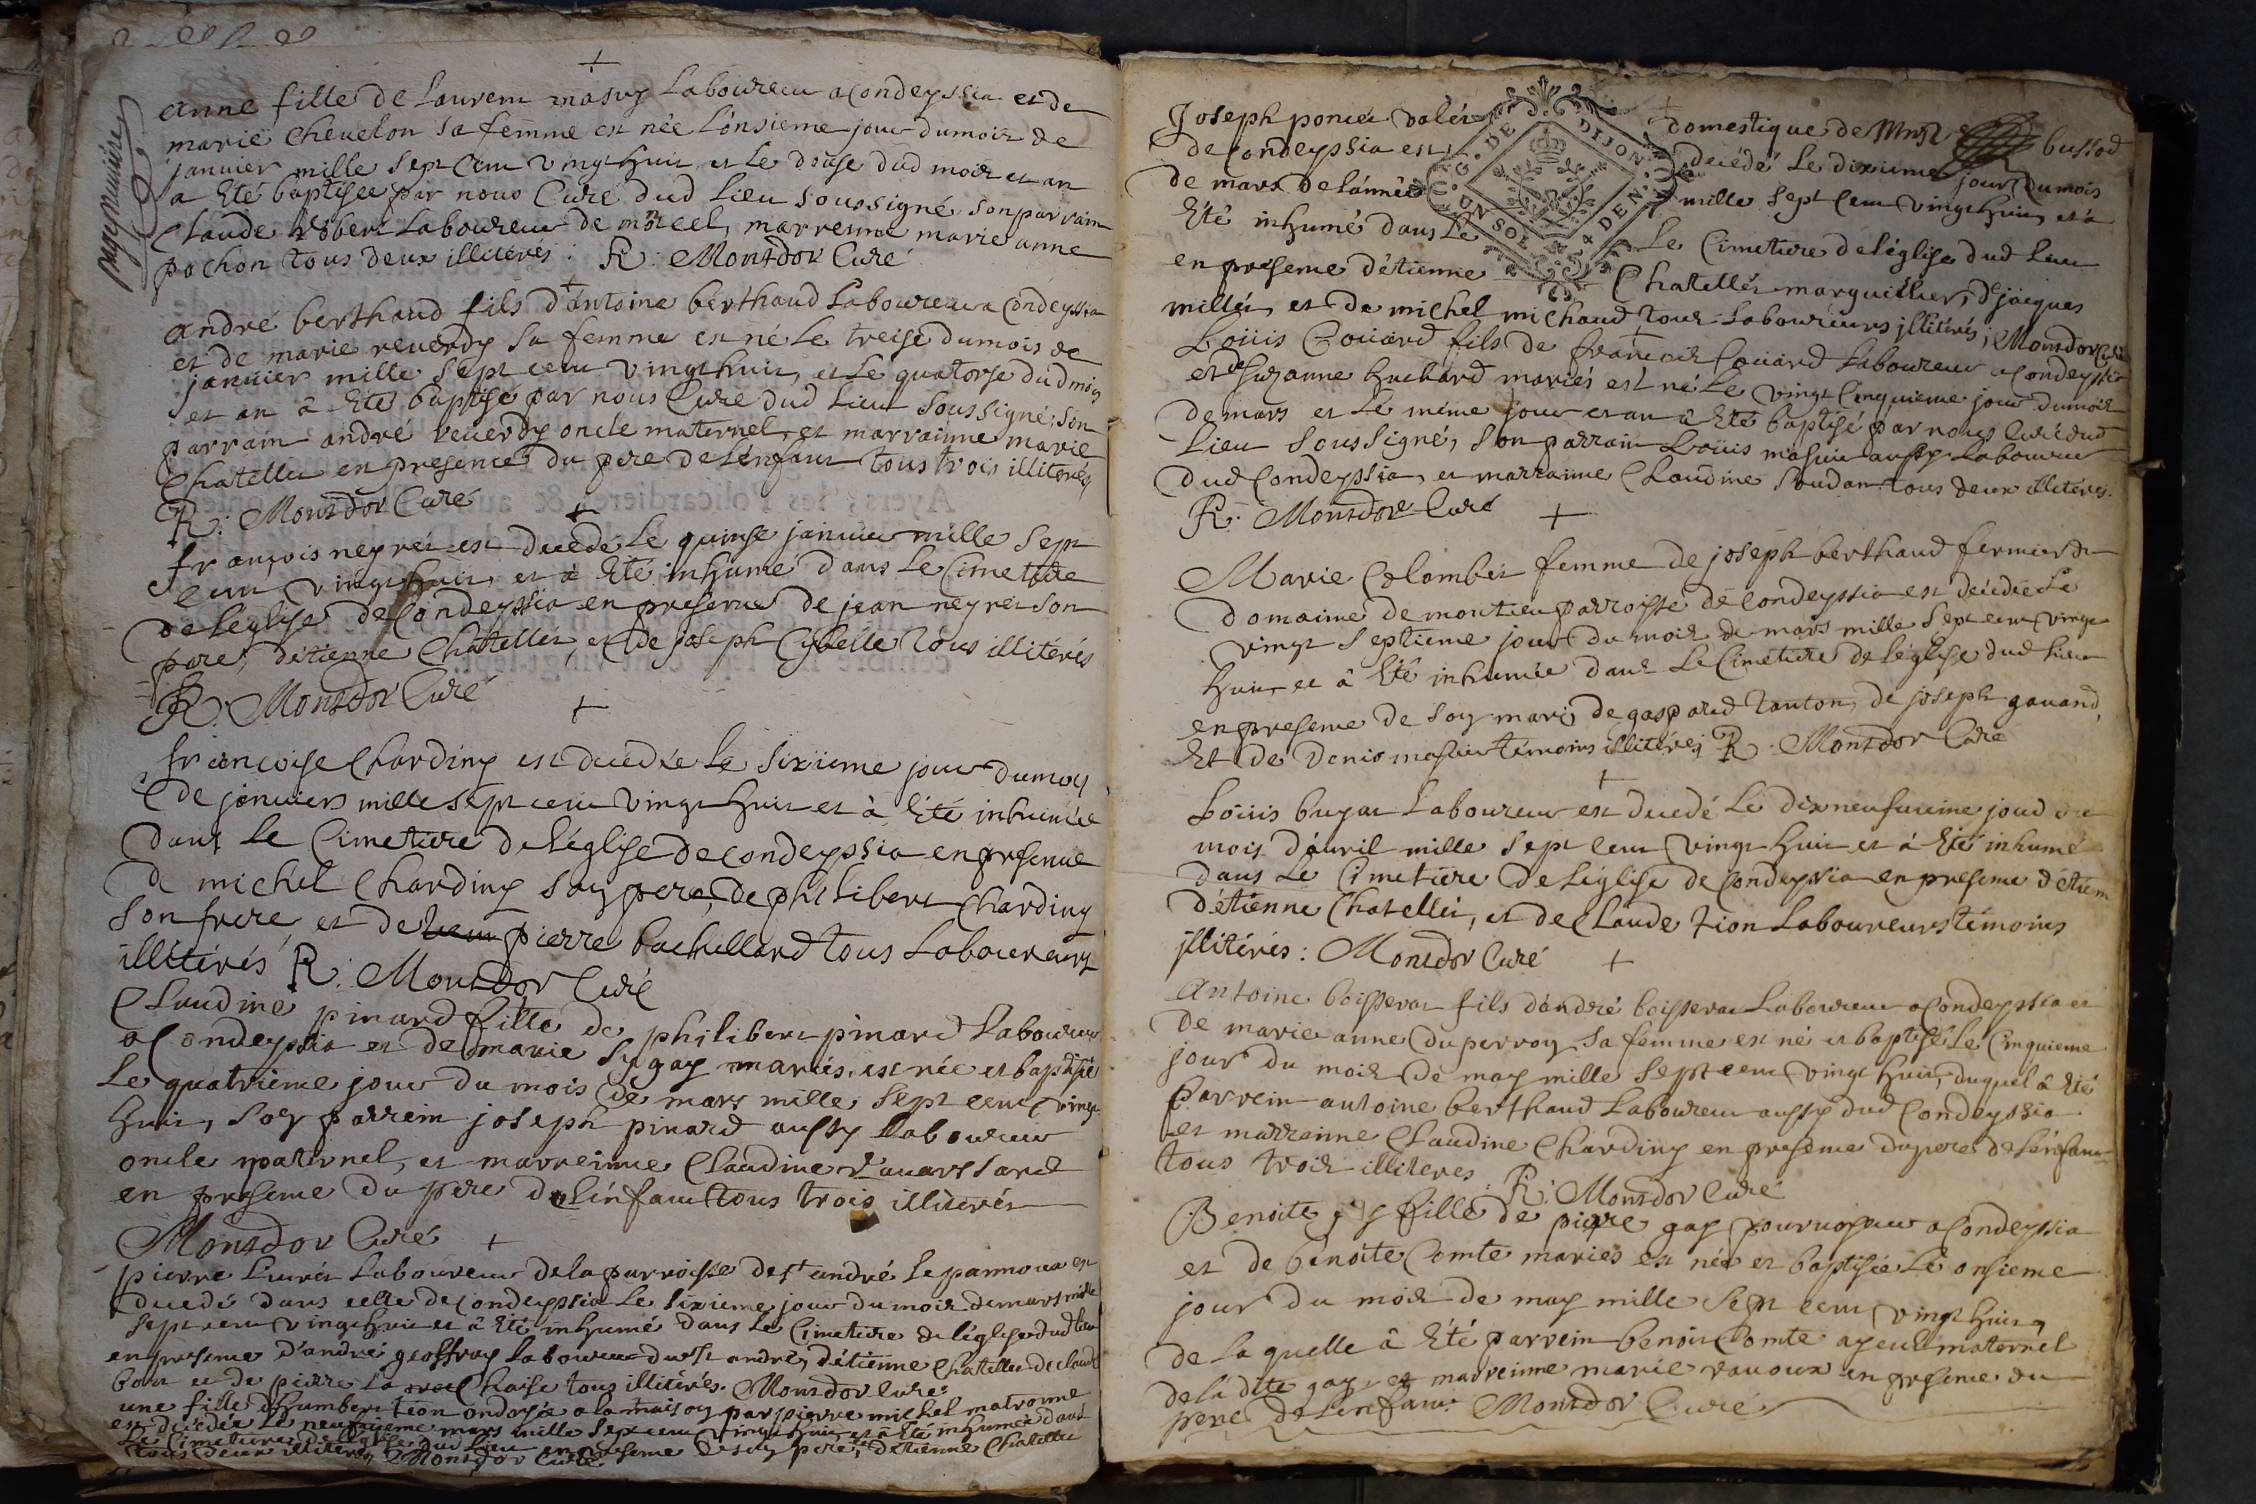 page premiére
anne fille de Laurent masuy Laboureur a Condeyssia et de
marie Chevelon sa femme est née L'onsieme jour du mois de
janvier mille Sept Cent Vingt huit et le douse dud mois et an
a Eté baptisée par nous Curé dud Lieu soussigné son parrain
Claude Robert Laboureur de marcel, marreinne marie anne
pochon tous deux illitérés. R: Monsdor Curé
andré berthaud fils d'antoine berthaud Laboureur a Condeyssia
et de marie reverdy sa femme est né Le treise du mois de
janvier mille Sept cent Vingt huit, et Le quatorse dud mois
et an â Eté baptisé par nous Curé dud Lieu Soussigné, Son
parrain andré reverdy oncle maternel, et marrainne marie
Chatellet en presence du pere de L'enfant tous trois illiterés
R: Monsdor Curé
françois neyret est decedé Le quinse janvier mille Sept
Cent vingt huit, et â Eté inhumé dans Le Cimetiere
de L'eglise de Condeyssia en presence de jean neyret son
pere, d'étienne Chatellet, et de joseph Cybelle tous illitérés
R: Monsdor Curé
françoise Chardiny est decedée Le Sixieme jour du moy
de janviers mille Sept cent vingt huit et à Eté inhumée
dans Le Cimetiere de L'église de Condeyssia en presence
de michel Chardiny Son pere, de philibert Chardiny
Son frere et de pierre bachellard tous Laboureurs
illitérés R: Monsdor Curé
Claudine pinard fille de philibert pinard Laboureur
a Condeyssia et de marie Sy gay mariés, est née et baptisée
Le quatrieme jour du mois de mars mille Sept cent vingt
huit, Son parrein joseph pinard aussy Laboureur
oncle paternel, et marreinne Claudine
en presence du pere de L'enfant tous trois illiterés
Monsdor Curé
pierre Livret Laboureur de la parroisse de St andré Le pannoux est
decedé dans celle de Condeyssia Le Sixieme jour du mois de mars mille
Sept cent vingt huit et â Eté inhumé dans Le Cimetiere de L'église dud Lieu
en presence d'andré geoffray Laboureur dud St andré, d'étienne Chatellet de claude
bon et de pierre La Chaise tous illitérés. Monsdor Curé.
une fille d'humbert tion ondoyée a la maison par pierre michel matronne
est décédée Le neufvieme mars mille Sept cent Vingt huit et â Eté inhumée dans
Le Cimetiere de L'église dud Lieu en presence de son pere, d'étienne Chatellet
tous deux illiterés Monsdor Curé.
G. DE DIJON
UN SOL 4 DEN.
Joseph poncet valet domestique de Mnsr bussod
de Condeyssia est decédé Le dixieme jour du mois
de mars de L'année mille Sept Cent vingt huit, et a
Eté inhumé dans Le Le Cimetiere de L'église dud Lieu
en presence d'étienne Chatellet marguillier, de jacques
millet, et de michel michaud, tous Laboureurs illitérés; Monsdor Curé
Loüis Coüard fils de françois Coüard Laboureur a Condeyssia
et de Suzanne huchard mariés est né Le vingt Cinquieme jour du mois
de mars et Le même jour et an â Eté baptisé par nous Curé dud
Lieu Soussigné, Son parrain Loüis masuir aussy Laboureur
dud Condeyssia, et marrainne Claudine Soudan tous deux illitérés.
R: Monsdor Curé
Marie Colombet femme de joseph berthaud fermier du
domaine de montieu parroisse de Condeyssia est décédée Le
vingt Septieme jour du mois de mars mille Sept cent vingt
huit, et â Eté inhumée dans Le Cimetiere de L'église dud Lieu
en presence de Son mari, de gaspard tanton, de joseph gavand,
Et de Denis masuir témoins illitérés R: Monsdor Curé
Loüis buyat Laboureur est decedé Le dixneufvieme jour du
mois d'avril mille Sept cent vingt huit et â Eté inhumé
dans Le Cimetiere de L'église de Condeyssia en presence d'étienn
d'étienne Chatellet, et de Claude tion Laboureurs témoins
illitérés: Monsdor Curé
Antoine boisserat fils d'andré boisserat Laboureur a Condeyssia et
de marie anne Duperroy sa femme est né et baptisé Le Cinquieme
jour du mois de may mille Sept cent vingt huit, duquel â Eté
parrein antoine berthaud Laboureur aussy dud Condeyssia
et marrainne Claudine Chardiny en presence du pere de L'énfant
tous trois illiteres. R: Monsdor Curé
Benoite gay fille de pierre gay a Condeyssia
et de benoite Comte mariés est née et baptisée Le onsieme
jour du mois de may mille Sept cent vingt huit,
de La quelle â Eté parrein benoit Comte ayeul maternel
de la dite gay, et marreinne marie ravoux en presence du
pere de L'enfant Monsdor Curé